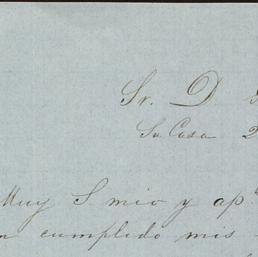 Sr. D.
Su Casa 2
Muy S. mio y ap.
cumplido mis